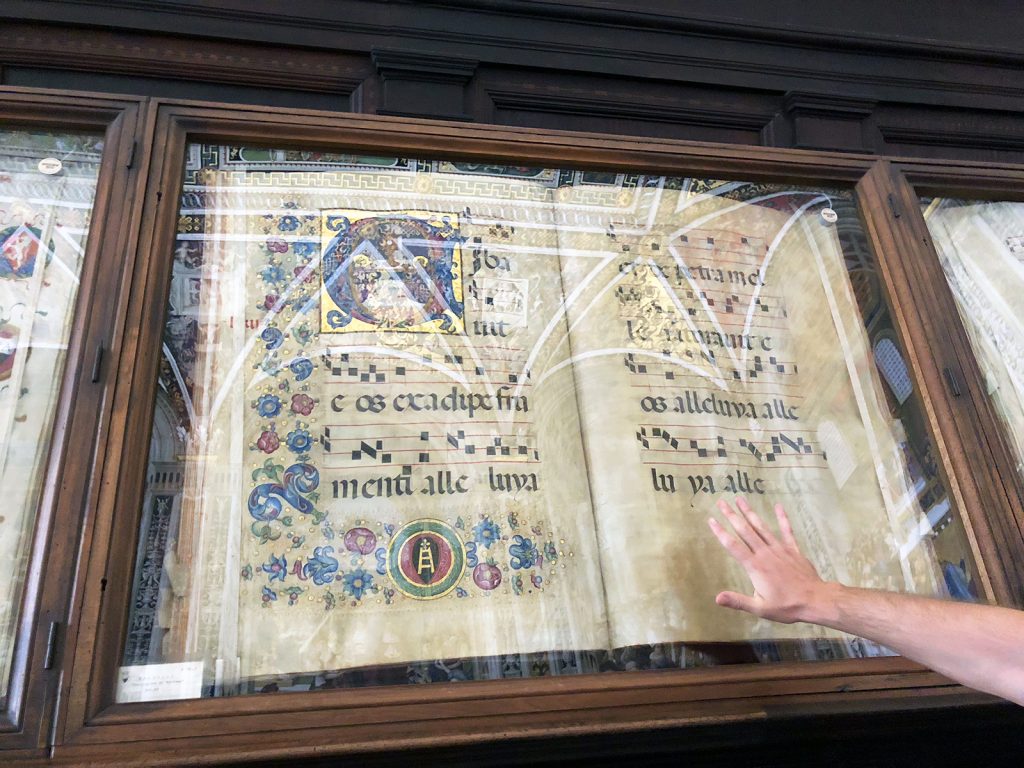 Ciba
uit
e os exadipe fru
menti alle luya
petra mel
le saturauit e
os alleluya alle
lu ya alle